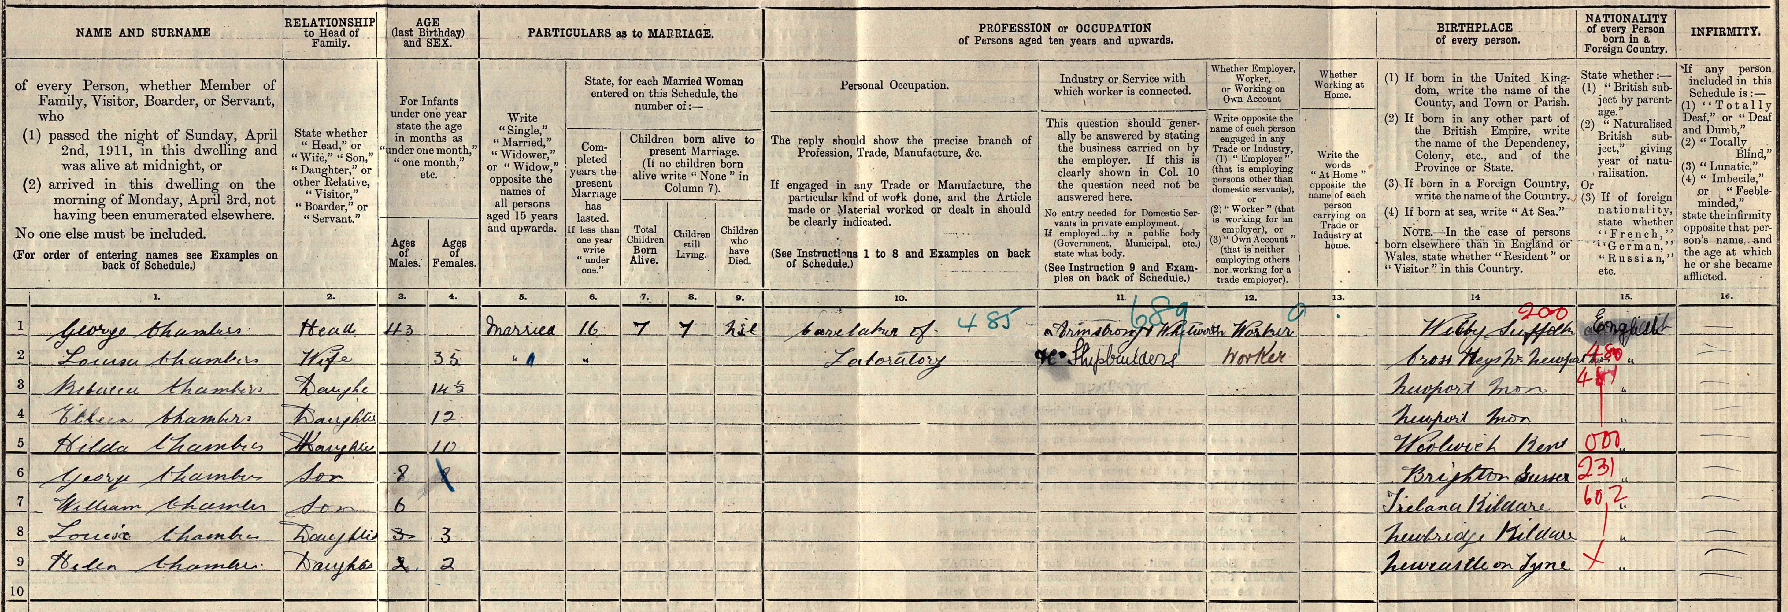 NAME AND SURNAME
of every Person, whether Member of
Family, Visitor, Boarder, or Servant,
who
(1) passed the night of Sunday, April
2nd, 1911, in this dwelling and
was alive at midnight, or
(2) arrived in this dwelling on the
morning of Monday, April 3rd, not
having been enumerated elsewhere.
No one else must be included.
(For order of entering names see Examples on
back of Schedule.)
RELATIONSHIP
to Head of
Family.
State whether
"Head," or
"Wife," "Son,"
"Daughter," or
other Relative,
"Visitor,"
"Boarder," or
"Servant."
AGE
(last Birthday)
and SEX.
For Infants
under one year
state the age
in months as
"under one month,"
"one month,"
etc.
Ages
of
Males.
Ages
of
Females.
PARTICULARS as to MARRIAGE.
Write
"Single,"
"Married,"
"Widower,"
or "Widow,"
opposite the
names of
all persons
aged 15 years
and upwards.
State, for each Married Woman
entered on this Schedule, the
number of:—
Com-
pleted
years the
present
Marriage
has
lasted.
If less than
one year
write
"under
one."
Children born alive to
present Marriage.
(If no children born
alive write "None" in
Column 7).
Total
Children
Born
Alive.
Children
still
Living.
Children
who
have
Died.
PROFESSION or OCCUPATION
of Persons aged ten years and upwards.
Personal Occupation.
The reply should show the precise branch of
Profession, Trade, Manufacture, &c.
If engaged in any Trade or Manufacture, the
particular kind of work done, and the Article
made or Material worked or dealt in should
be clearly indicated.
(See Instructions 1 to 8 and Examples on back
of Schedule.)
Industry or Service with
which worker is connected.
This question should gener-
ally be answered by stating
the business carried on by
the employer. If this is
clearly shown in Col. 10
the question need not be
answered here.
No entry needed for Domestic Ser-
vants in private employment.
If employed by a public body
(Government, Municipal, etc.)
state what body.
(See Instruction 9 and Exam-
ples on back of Schedule.)
Whether Employer,
Worker,
or Working on
Own Account
Write opposite the
name of each person
engaged in any
Trade or Industry,
(1) "Employer"
(that is employing
persons other than
domestic servants),
or
(2) "Worker" (that
is working for an
employer), or
(3) "Own Account"
(that is neither
employing others
nor working for a
trade employer).
Whether
Working at
Home.
Write the
words
"At Home"
opposite the
name of each
person
carrying on
Trade or
Industry at
home.
BIRTHPLACE
of every person.
(1) If born in the United King-
dom, write the name of the
County, and Town or Parish.
(2) If born in any other part of
the British Empire, write
the name of the Dependency,
Colony, etc., and of the
Province or State.
(3) If born in a Foreign Country,
write the name of the Country.
(4) If born at sea, write "At Sea."
NOTE.—In the case of persons
born elsewhere than in England or
Wales, state whether "Resident" or
"Visitor" in this Country.
NATIONALITY
of every Person
born in a
Foreign Country.
State whether:—
(1) "British sub-
ject by parent-
age."
(2) "Naturalised
British sub-
ject," giving
year of natu-
ralisation.
Or
(3) If of foreign
nationality,
state whether
"French,"
"German,"
"Russian,"
etc.
INFIRMITY.
If any person
included in this
Schedule is:—
(1) "Totally
Deaf," or "Deaf
and Dumb,"
(2) "Totally
Blind,"
(3) "Lunatic,"
(4) "Imbecile,"
or "Feeble-
minded,"
state the infirmity
opposite that per-
son's name, and
the age at which
he or she became
afflicted.
1. 2. 3. 4. 5. 6. 7. 8. 9. 10. 11. 12. 13. 14 15. 16.
1 George Chambers Head 43 Married 16 7 7 nil Caretaker of 485 Armstrong Whitworth 689 Worker 0 Wilby Suffolk 200 English
2 Louisa Chambers Wife 35 " " Laboratory Shipbuilders Worker Cross Keys Nr Newport 480 "
3 Rebecca Chambers Daughe 14 Newport Mon "
4 Ellen Chambers Daughter 12 Newport Mon "
5 Hilda Chambers Daughter 10 Woolwich Kent 000 "
6 George Chambers Son 8 Brighton Sussex 231 "
7 William Chambers Son 6 Ireland Kildare 602 "
8 Louise Chambers Daughter 3 3 Newbridge Kildare "
9 Helen Chambers Daughter 2 2 Newcastle on Tyne X "
10